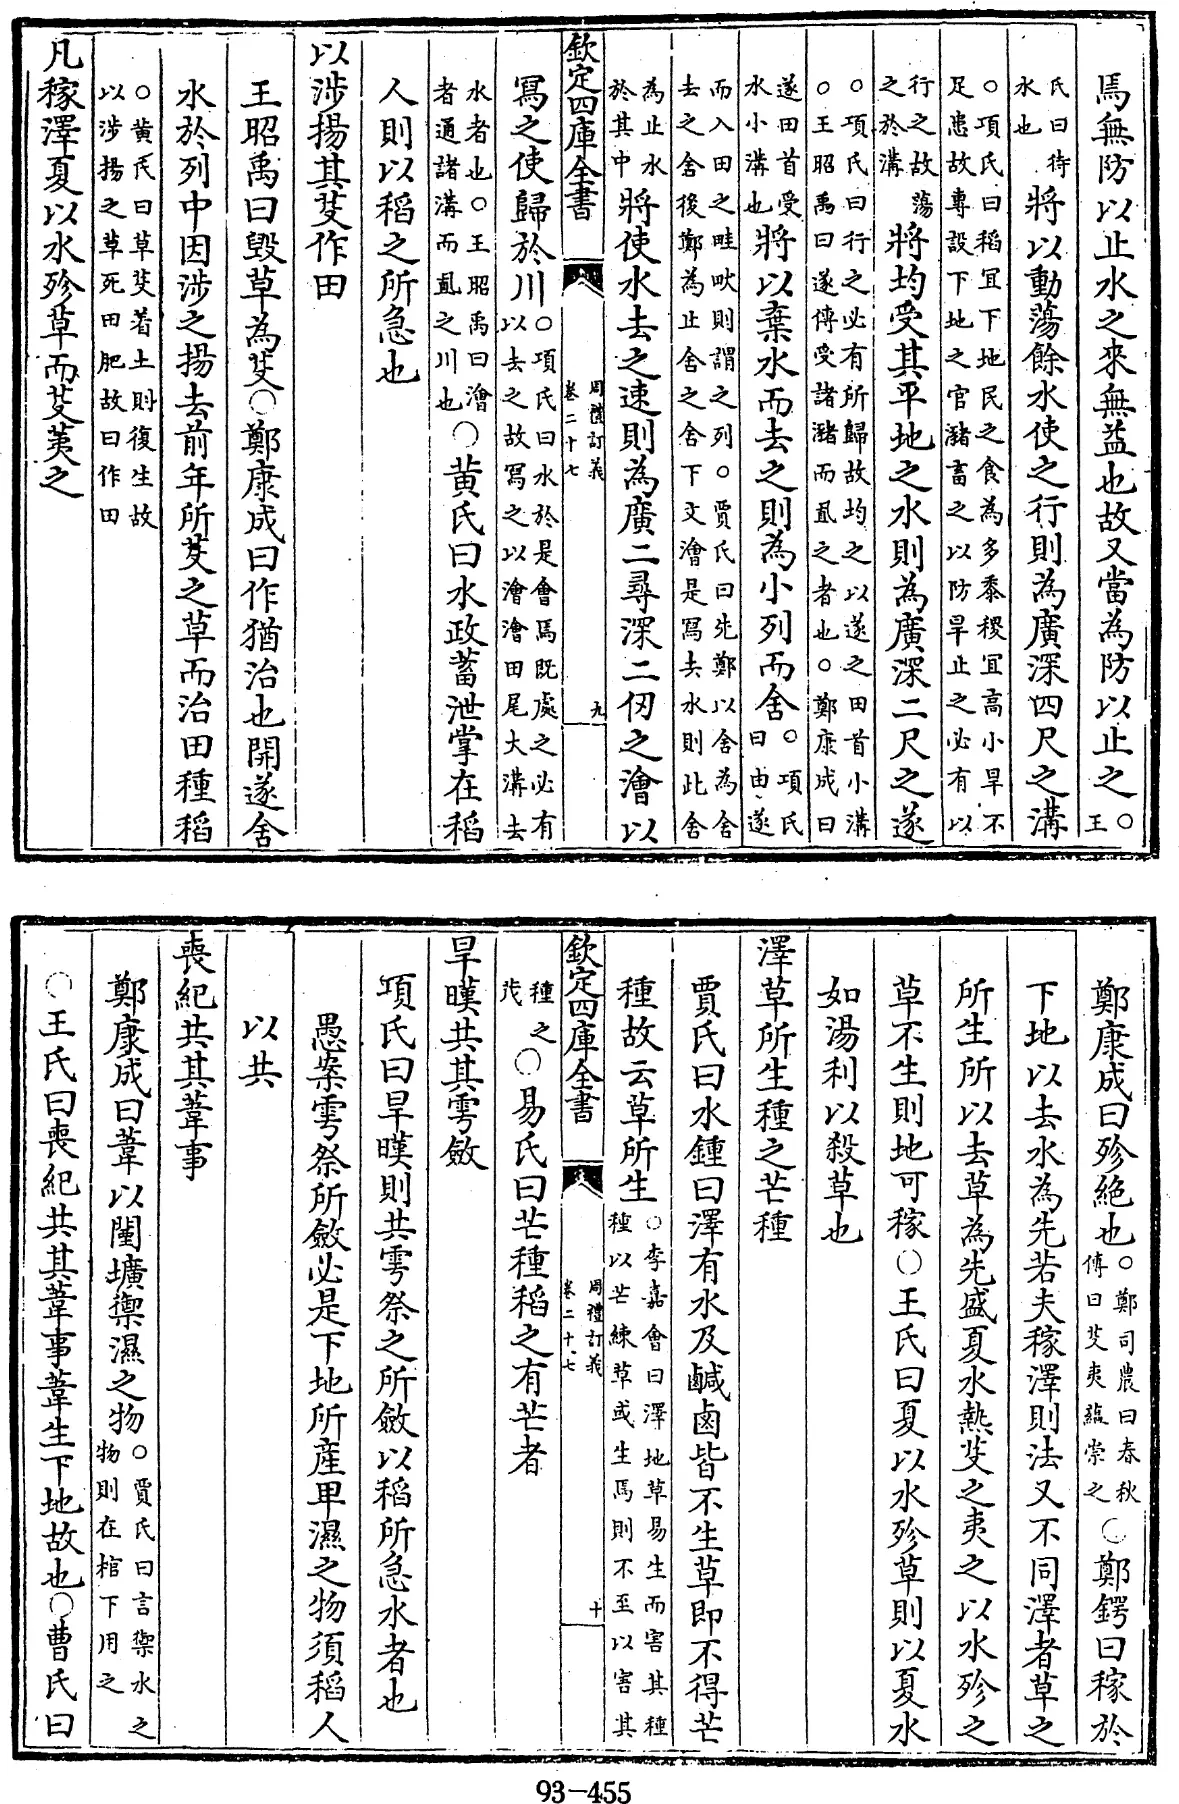 焉無防以止水之來無益也故又當為防以止之○王
氏曰待水也將以動蕩餘水使之行則為廣深四尺之溝
○項氏曰稻宜下地民之食為多黍稷宜高小旱不
足患故專設下地之官瀦畜之以防旱止之必有以
行之故蕩之於溝將均受其平地之水則為廣深二尺之遂
○項氏曰行之必有所歸故均之以遂之田首小溝
○王昭禹曰遂傳受諸瀦而亂之者也○鄭康成曰
遂田首受水小溝也將以棄水而去之則為小列而舍○項氏曰由遂
而入田之畦畎則謂之列○賈氏曰先鄭以舍為舍
去之舍後鄭為止舍之舍下文澮是寫去水則此舍
為止水於其中將使水去之速則為廣二尋深二仞之澮以
欽定四庫全書
周禮訂義
卷二十七
九
寫之使歸於川○項氏曰水於是會焉既處之必有以去之故寫之以澮澮田尾大溝去
水者也○王昭禹曰澮者通諸溝而亂之川也○黃氏曰水政蓄泄掌在稻
人則以稻之所急也
以涉揚其芟作田
王昭禹曰毀草為芟○鄭康成曰作猶治也開遂舍
水於列中因涉之揚去前年所芟之草而治田種稻
○黃氏曰草芟着土則復生故
以涉揚之草死田肥故曰作田
凡稼澤夏以水殄草而芟荑之
鄭康成曰殄絶也○鄭司農曰春秋傳曰芟夷蘊崇之○鄭鍔曰稼於
下地以去水為先若夫稼澤則法又不同澤者草之
所生所以去草為先盛夏水熱芟之夷之以水殄之
草不生則地可稼○王氏曰夏以水殄草則以夏水
如湯利以殺草也
澤草所生種之芒種
賈氏曰水鍾曰澤有水及鹹鹵皆不生草即不得芒
種故云草所生○李嘉會曰澤地草易生而害其種種以芒練草或生焉則不至以害其
欽定四庫全書
周禮訂義
卷二十七
十
種之茂○易氏曰芒種稻之有芒者
旱暵共其雩斂
項氏曰旱暵則共雩祭之所斂以稻所急水者也
愚案雩祭所斂必是下地所産卑濕之物須稻人
以共
喪紀共其葦事
鄭康成曰葦以闉壙禦濕之物○賈氏曰言禦水之物則在棺下用之
○王氏曰喪紀共其葦事葦生下地故也○曹氏曰
93-455